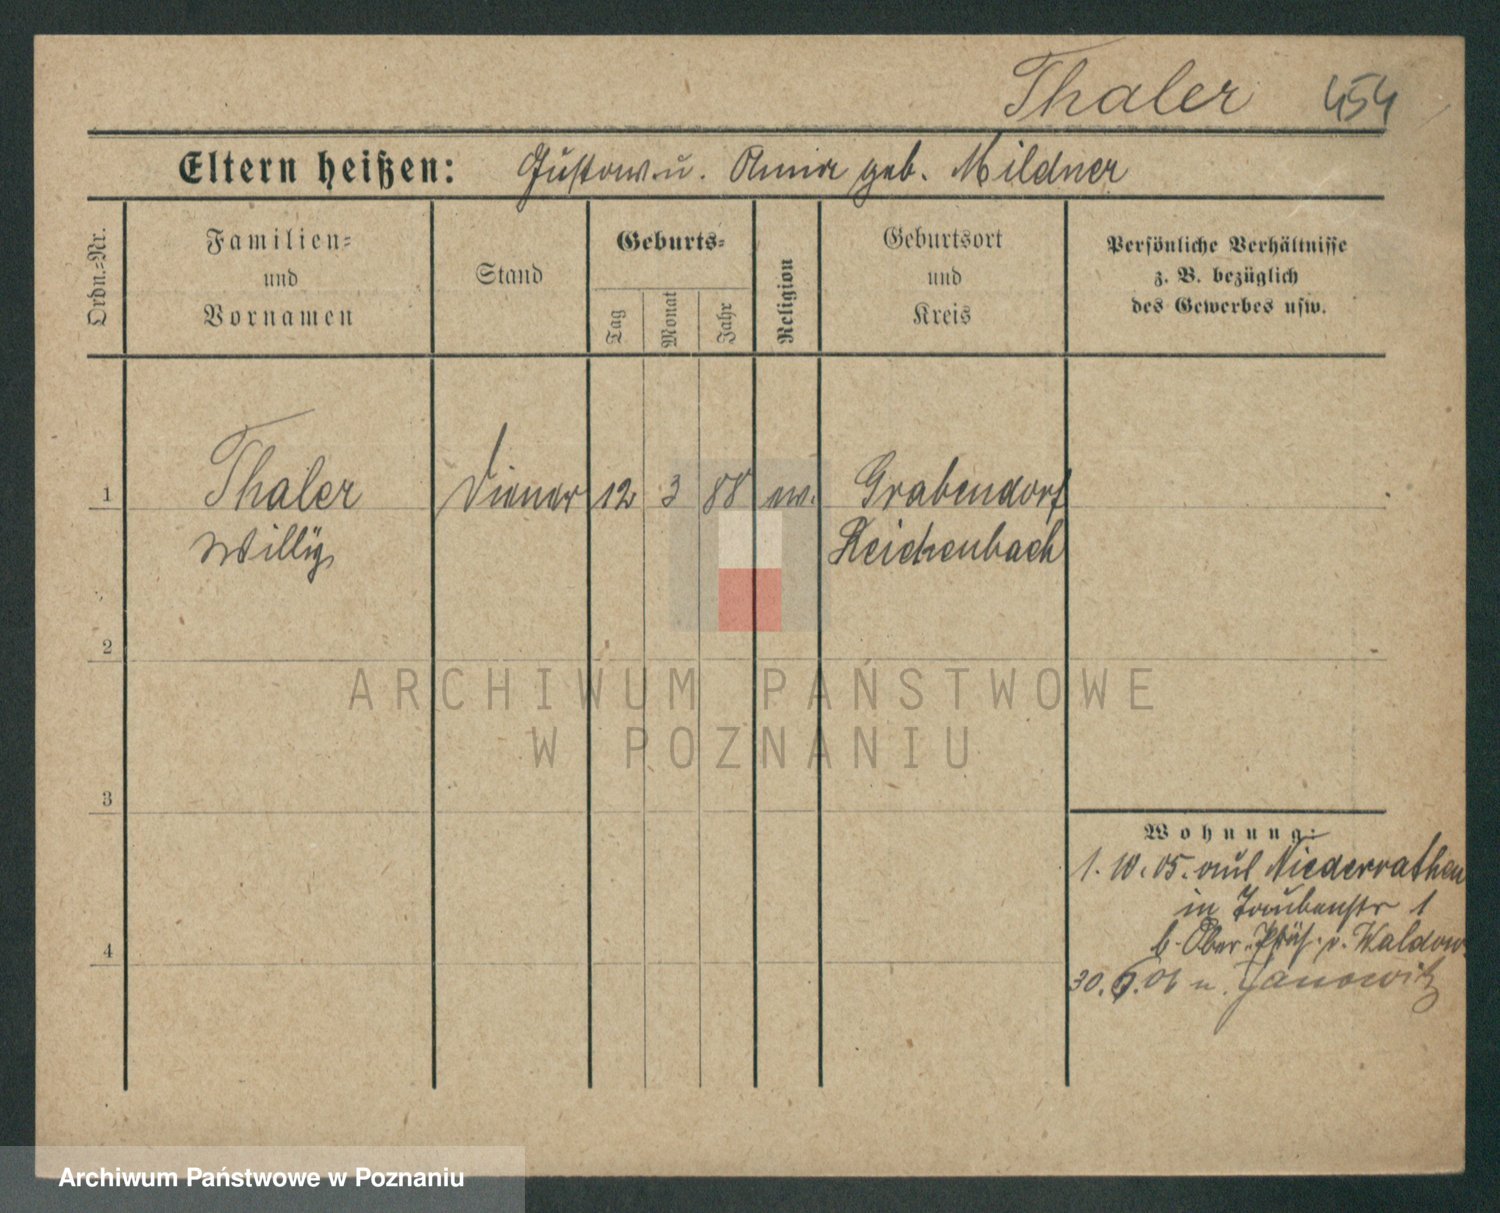 Thaler 454
Eltern heißen: Gustav u. Anna geb. Mildner
Ordn.-Nr.
Familien-
und
Vornamen
Stand
Geburts-
Tag
Monat
Jahr
Religion
Geburtsort
und
Kreis
Persönliche Verhältnisse
z. B. bezüglich
des Gewerbes usw.
1 Thaler Diener 12 3 88 ev. Grabendorf
Willy Reichenbach
2
ARCHIWUM PAŃSTWOWE
W POZNANIU
3
Wohnung:
1. 10. 05. aus Niederrathen
in Taubenstr 1
b. Ober. Präs. v. Waldow
4
30. 6. 06 n. Janowitz
Archiwum Państwowe w Poznaniu